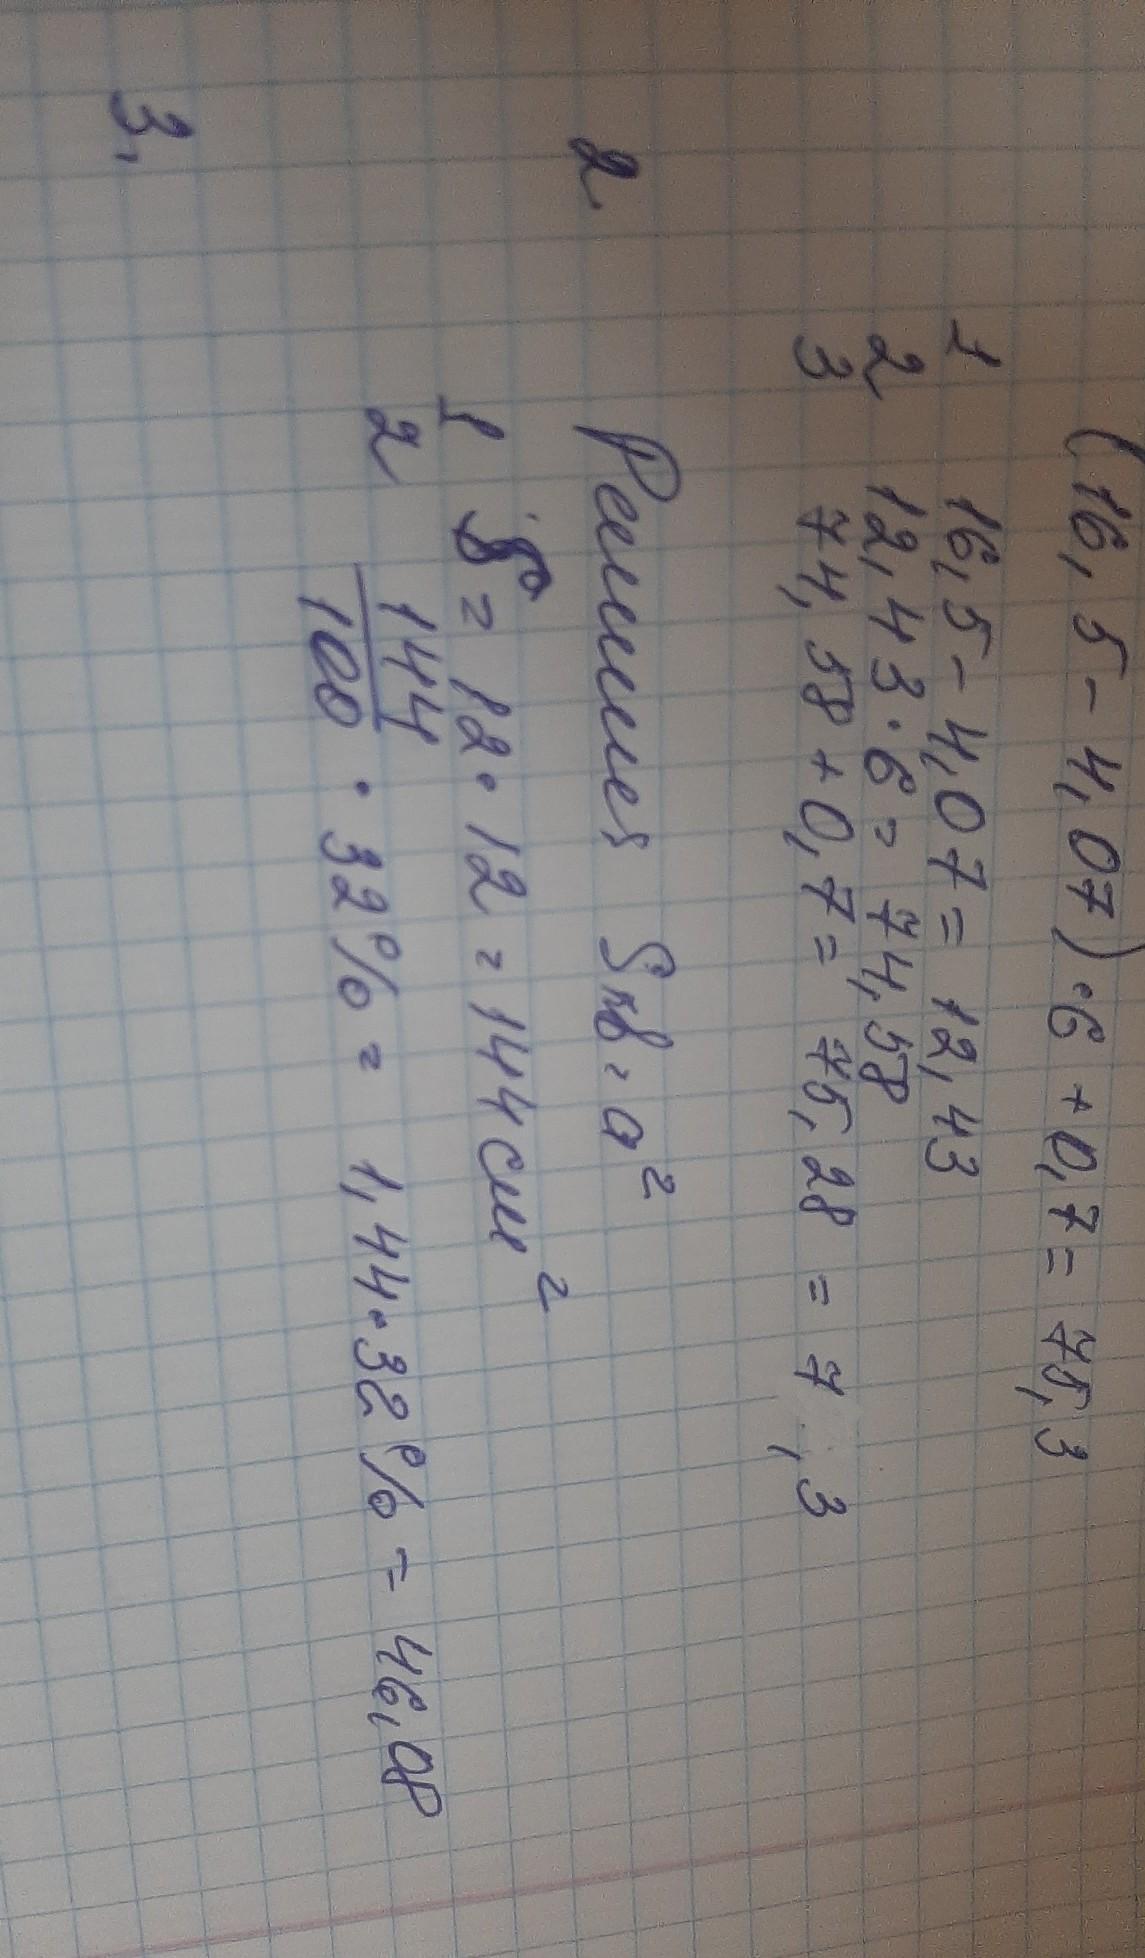 (16,5-4,07)·6+0,7=75,3
1 16,5-4,07=12,43
2 12,43·6=74,58
3 74,58+0,7=75,28=7 ,3
2 Решения Sкв=a²
1 S=12·12=144см²
2 144/100 · 32%= 1,44·32%=46,08
3.